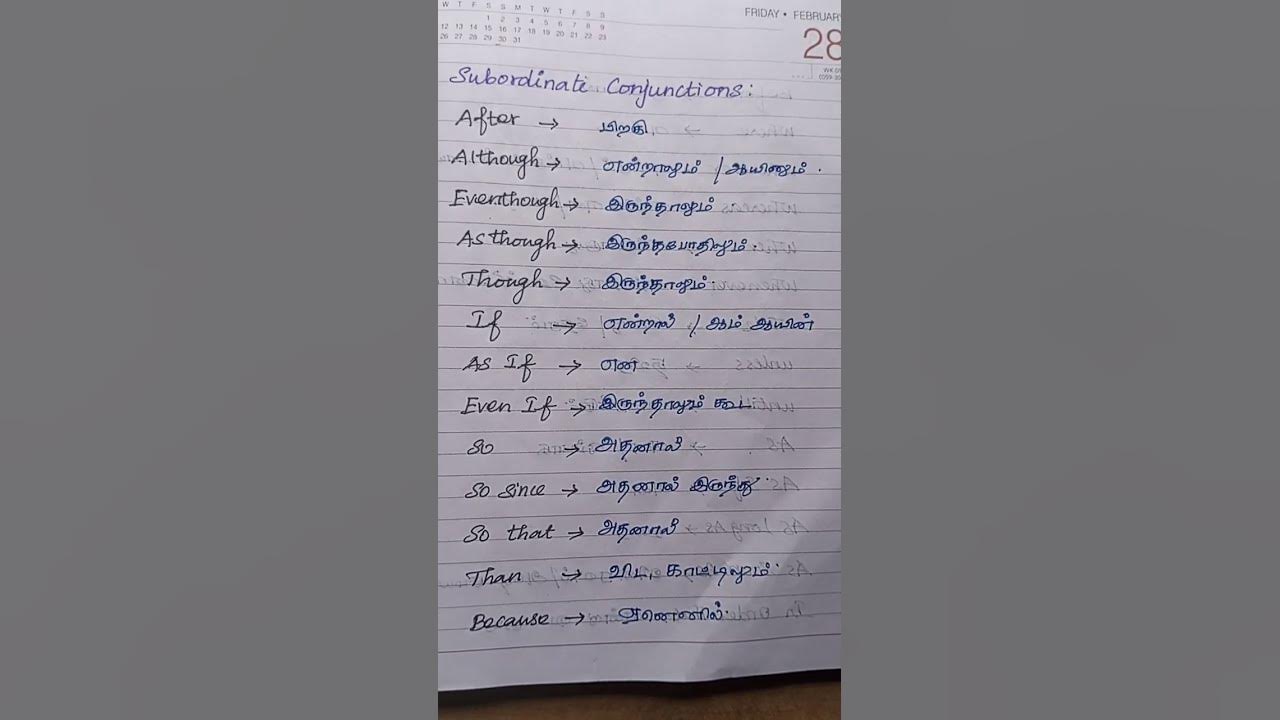 W T F S S M T W T F S S
1 2 3 4 5 6 7 8 9
12 13 14 15 16 17 18 19 20 21 22 23
26 27 28 29 30 31
FRIDAY • FEBRUARY
28
Subordinate Conjunctions:
After → பிறகு
Although → என்றாலும் / ஆயினும்.
Eventhough → இருந்தாலும்
As though → இருந்தபோதிலும்.
Though → இருந்தாலும்.
If → / என்றால் / ஆம் ஆயின்
As If → என
Even If → இருந்தாலும் கூட
So → அதனால்
So since → அதனால் இருந்து.
So that → அதனால்
Than → விட, காட்டிலும்.
Because → ஏனெனில்.